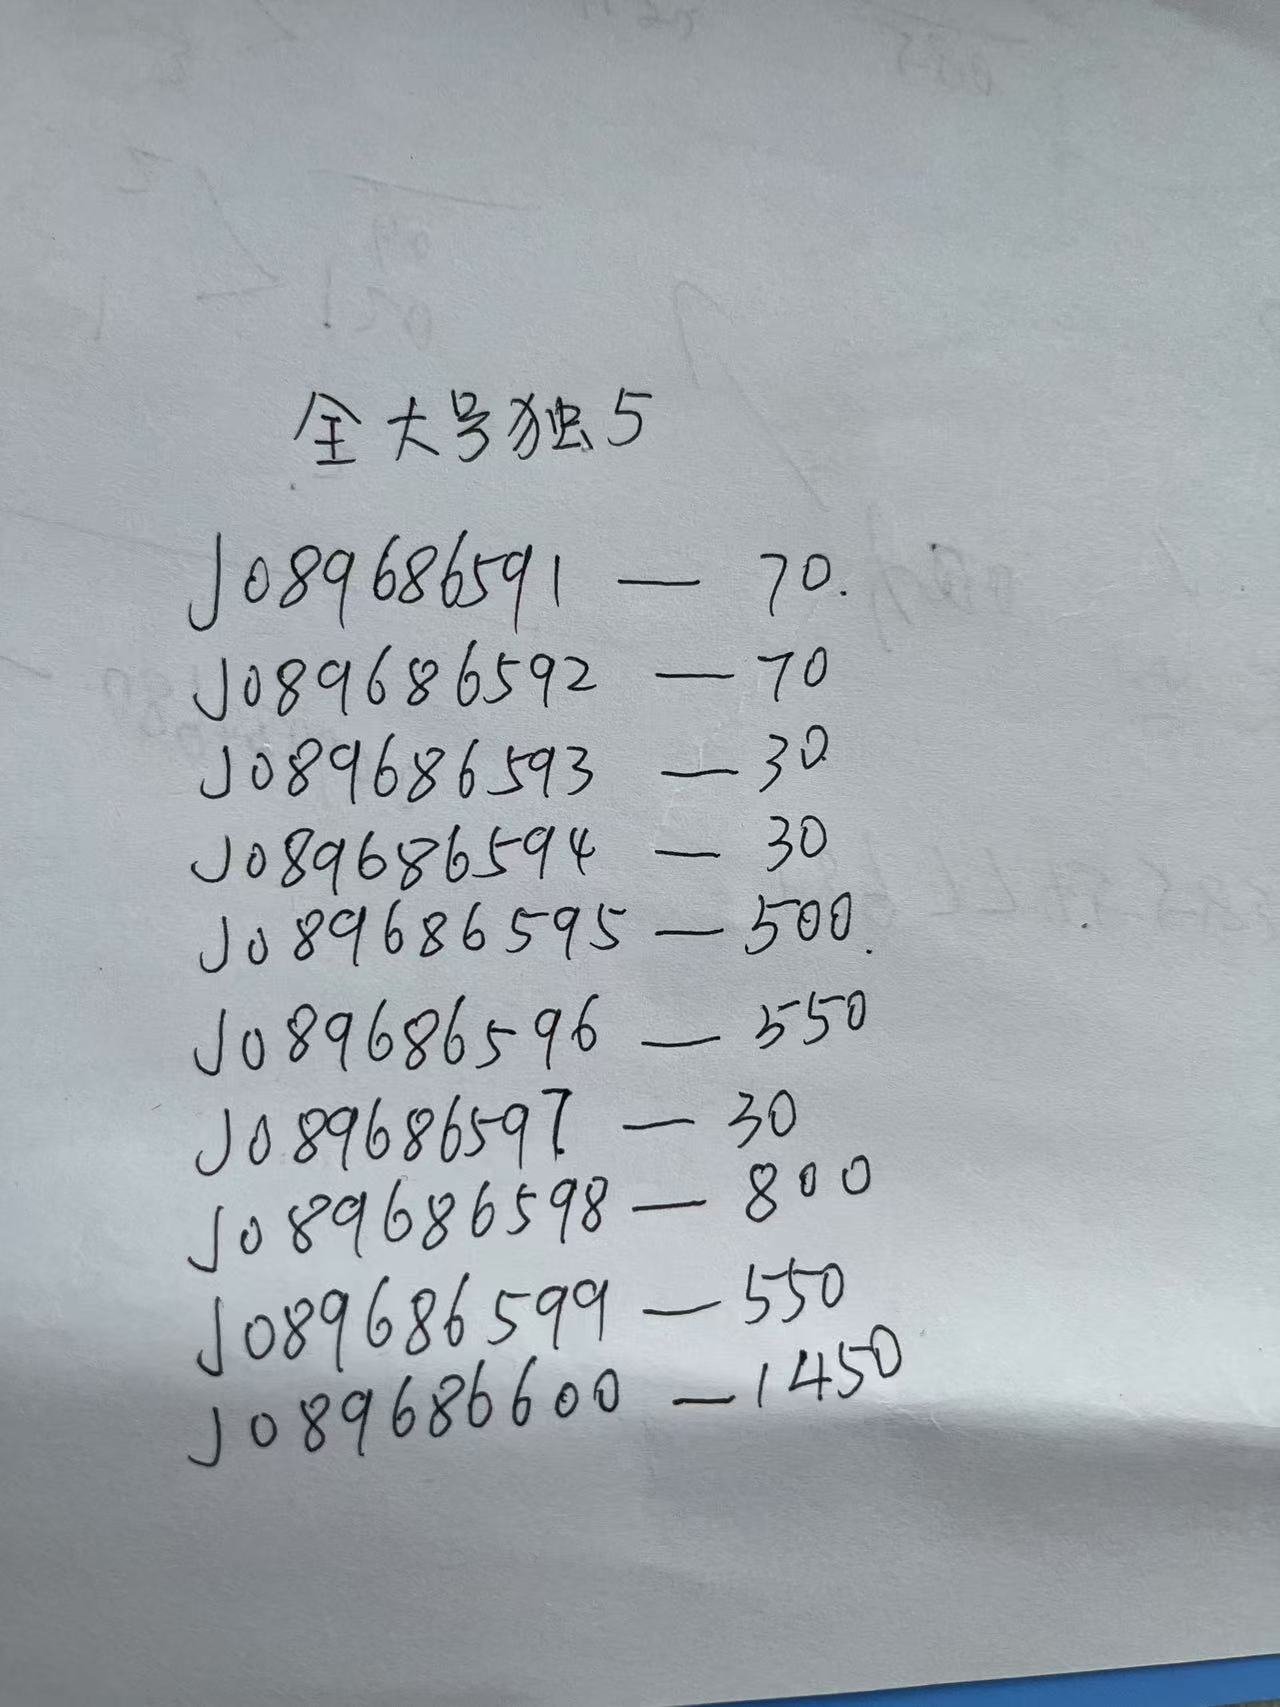 全大号独5
J089686591 — 70.
J089686592 — 70
J089686593 — 30
J089686594 — 30
J089686595 — 500.
J089686596 — 550
J089686597 — 30
J089686598 — 800
J089686599 — 550
J089686600 — 1450